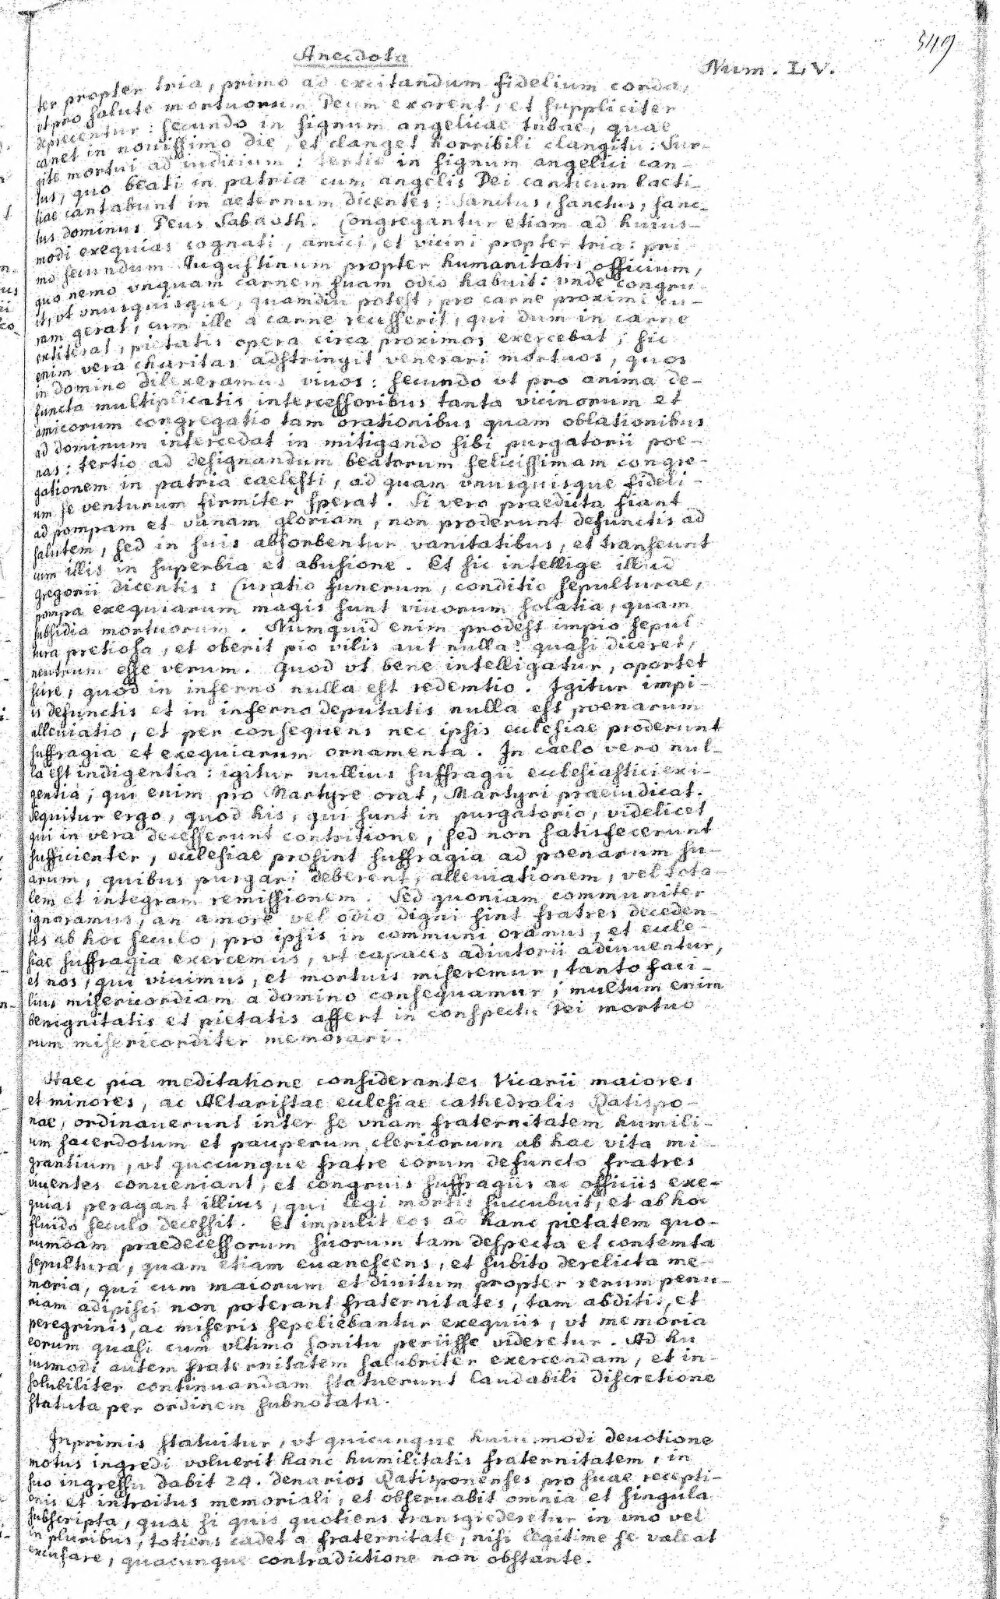 549
Anecdota
Num. LV.
ter propter tria, primo ad excitandum fidelium corda,
ut pro salute mortuorum Deum exorent, et suppliciter
deprecentur: secundo in signum angelicae tubae, quae
canet in novissimo die, et clanget horribili clangitu: Sur-
gite mortui ad iudicium: tertio in signum angelici can-
tus, quo beati in patria cum angelis Dei canticum laeti-
tiae cantabunt in aeternum dicentes: Sanctus, sanctus, sanc-
tus dominus Deus Sabaoth. Congregantur etiam ad huius-
modi exequias cognati, amici, et vicini propter tria: pri-
mo secundum Augustinum propter humanitatis officium,
quo nemo unquam carnem suam odio habuit: unde congru-
it, ut unusquisque, quamdiu potest, pro carne proximi cu-
ram gerat, cum ille a carne recesserit, qui dum in carne
extiterat, pietatis opera circa proximos exercebat; sic
enim vera charitas adstringit venerari mortuos, quos
in domino dilexeramus vivos: secundo ut pro anima de-
functa multiplicatis intercessoribus tanta vicinorum et
amicorum congregatio tam orationibus quam oblationibus
ad dominum intercedat in mitigando sibi purgatorii poe-
nas: tertio ad designandum beatorum felicissimam congre-
gationem in patria caelesti, ad quam unusquisque fideli-
um se venturum firmiter sperat. Si vero praedicta fiant
ad pompam et vanam gloriam, non proderunt defunctis ad
salutem, sed in suis absorbentur vanitatibus, et transeunt
cum illis in superbia et abusione. Et sic intellige illud
Gregorii dicentis: Curatio funerum, conditio sepulturae,
pompa exequiarum magis sunt vivorum solatia, quam
subsidia mortuorum. Numquid enim prodest impio sepul-
tura pretiosa, et oberit pio vilis aut nulla? quasi diceret,
neutrum esse verum. Quod ut bene intelligatur, oportet
scire, quod in inferno nulla est redemtio. Igitur impi-
is defunctis et in inferno deputatis nulla est poenarum
alleviatio, et per consequens nec ipsis ecclesiae proderunt
suffragia et exequiarum ornamenta. In caelo vero nul-
la est indigentia: igitur nullius suffragii ecclesiastici exi-
gentia; qui enim pro Martyre orat, Martyri praeiudicat.
Sequitur ergo, quod his, qui sunt in purgatorio, videlicet
qui in vera decesserunt contritione, sed non satisfecerunt
sufficienter, ecclesiae prosint suffragia ad poenarum su-
arum, quibus purgari deberent, alleviationem, vel tota-
lem et integram remissionem. Sed quoniam communiter
ignoramus, an amore vel odio digni sint fratres deceden-
tes ab hoc seculo, pro ipsis in communi oramus, et eccle-
siae suffragia exercemus, ut capaces adiutorii adiuventur,
et nos, qui vivimus, et mortuis miseremur, tanto faci-
lius misericordiam a domino consequamur; multum enim
benignitatis et pietatis affert in conspectu Dei mortuo
rum misericorditer memorari.
Haec pia meditatione considerantes Vicarii maiores
et minores, ac Altaristae ecclesiae cathedralis Ratispo-
nae, ordinaverunt inter se unam fraternitatem humili-
um sacerdotum et pauperum clericorum ab hac vita mi-
grantium, ut quocunque fratre eorum defuncto fratres
viventes conveniant, et congruis suffragiis ac officiis exe-
quias peragant illius, qui legi mortis succubuit, et ab hoc
fluido seculo decessit. Et impulit eos ad hanc pietatem quo-
rumdam praedecessorum suorum tam despecta et contemta
sepultura, quam etiam evanescens, et subito derelicta me-
moria, qui cum maiorum et divitum propter rerum penu-
riam adipisci non poterant fraternitates, tam abditis, et
peregrinis, ac miseris sepeliebantur exequiis, ut memoria
eorum quasi cum ultimo sonitu periisse videretur. Ad hu
iusmodi autem fraternitatem salubriter exercendam, et in-
solubiliter continuandam statuerunt laudabili discretione
statuta per ordinem subnotata.
Inprimis statuitur, ut quicunque huiusmodi devotione
motus ingredi voluerit hanc humilitatis fraternitatem, in
suo ingressu dabit 24. denarios Ratisponenses pro suae recepti-
onis et introitus memoriali, et observabit omnia et singula
subscripta, quae si quis quotiens transgrederetur in uno vel
in pluribus, totiens cadet a fraternitate, nisi legitime se valeat
excusare, quacunque contradictione non obstante.